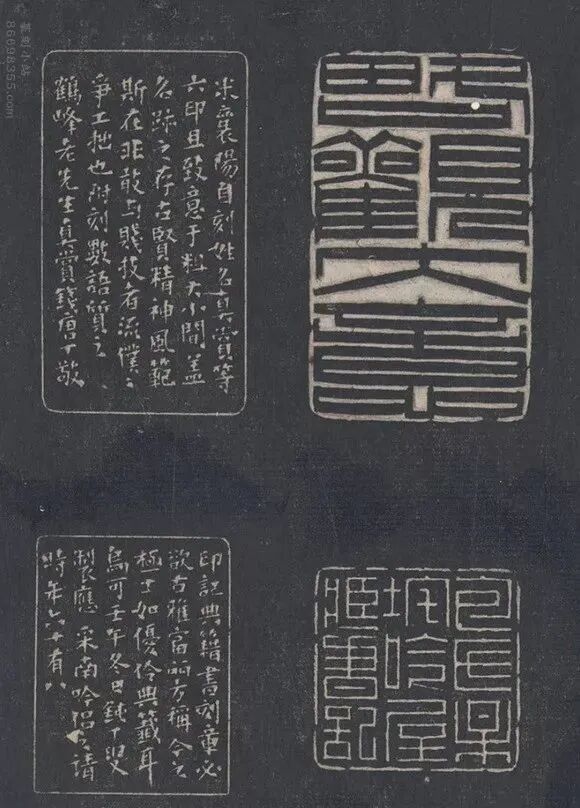 米襄陽自刻姓名真賞等
六印且致意于粗大小間蓋
名跡之存古賢精神風範
斯在非敢与賤技者流僕〻
爭工拙也附刻數語質之
鶴峰老先生真賞錢唐丁敬
包氏某
垞吟屋
藏書記
印記典籍書刻
必
欲古雅富丽方稱今之
極工如優伶典籤耳
烏可壬午冬日鈍丁叟
製應 采南吟侣之請
時年六十有八